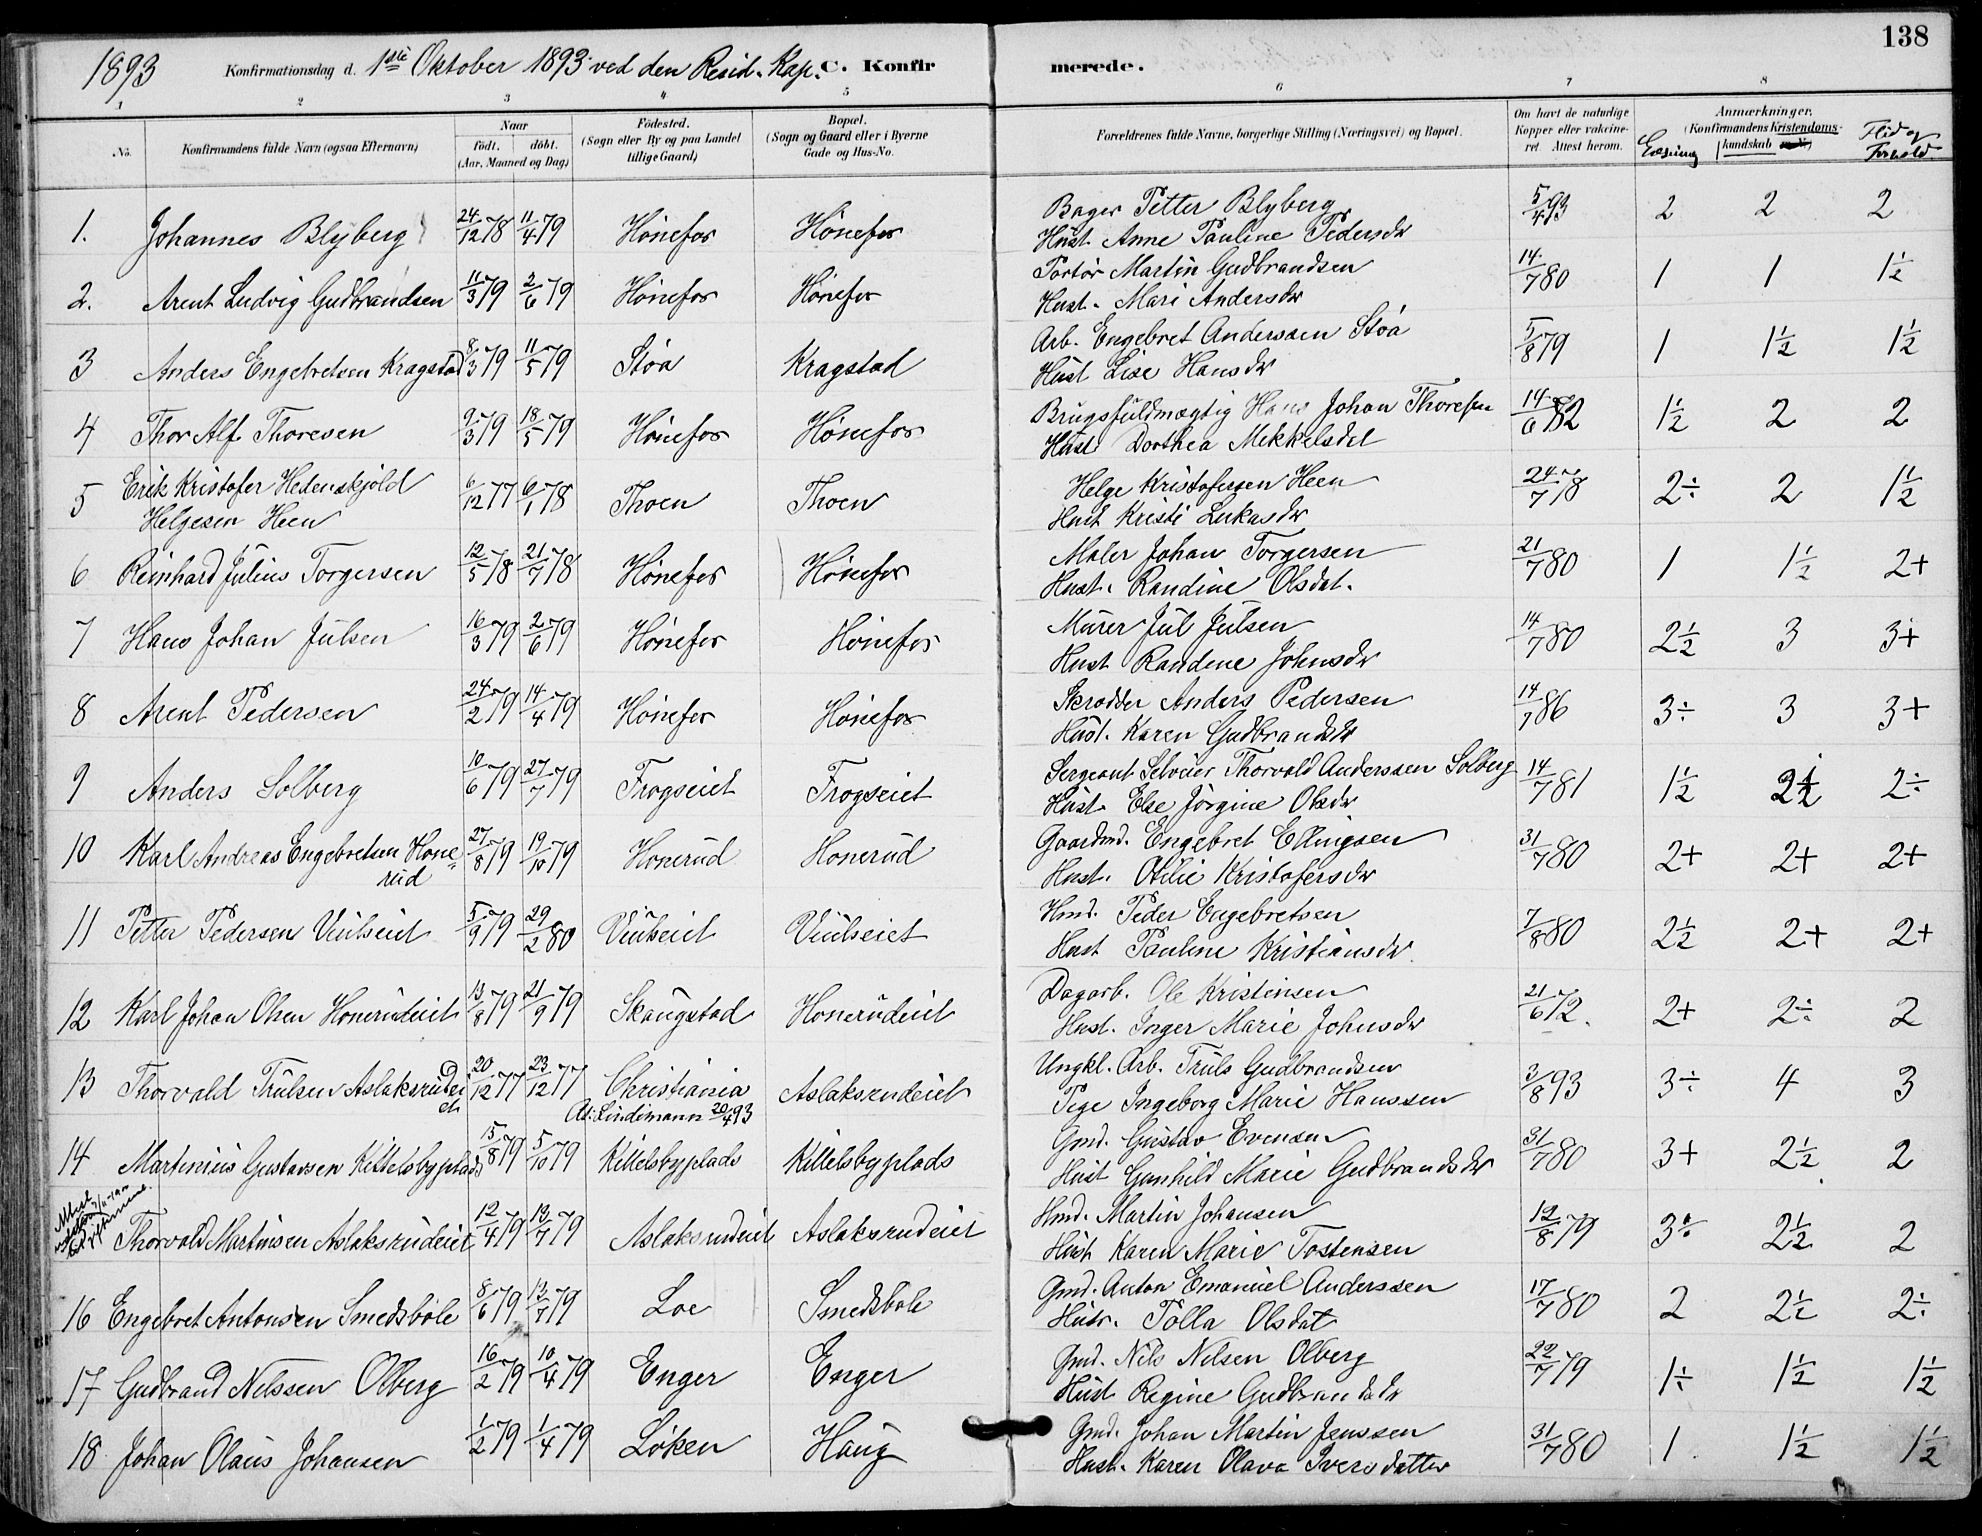 138
1893 Konfirmationsdag d. 1ste Oktober 1893 ved den Resid. Kap. C. Konfir merede.
1 2 3 4 5 6 7 8
No. Konfirmandens fulde Navn (ogsaa Efternavn) Naar födt. döbt. (Aar, Maaned og Dag) Födested. (Sogn eller By og paa Landet tillige Gaard) Bopæl. (Sogn og Gaard eller i Byerne Gade og Hus-No. Forældrenes fulde Navne, borgerlige Stilling (Næringsvei) og Bopæl. Om havt de naturlige Kopper eller vakcineret. Attest herom. Anmærkninger. (Konfirmandens Kristendomskundskab Flid og Forhold
1. Johannes Blyberg 24/12 78 11/4 79 Hönefos Hönefos Bager Petter Blyberg 5/4 93 2 2 2
Hust. Anne Pauline Pedersdr
2. Arent Ludvig Gudbrandsen 11/3 79 2/6 79 Hönefos Hönefos Portör Martin Gudbrandsen 14/7 80 1 1 1½
Hust. Mari Andersdr
3 Anders Engebretsen Kragstad 8/3 79 11/5 79 Stöa Kragstad Arb. Engebret Anderssen Stöa 5/8 79 1 1½ 1½
Hust Lise Hansdr
4 Thor Alf Thoresen 9/3 79 18/5 79 Hönefos Hönefos Brugsfuldmægtig Hans Johan Thoresen 14/6 82 1½ 2 2
Hust Dorthea Mikkelsdat
5 Erik Kristofer Hedenskjold 6/12 77 6/1 78 Thoen Thoen Helge Kristofersen Heen 24/7 78 2÷ 2 1½
Helgesen Heen Hust Kristi Lukasdr
6 Reinhard Julius Torgersen 12/5 78 21/7 78 Hönefos Hönefos Maler Johan Torgersen 21/7 80 1 1½ 2+
Hust. Randine Olsdat.
7 Hans Johan Julsen 16/3 79 2/6 79 Hönefos Hönefos Murer Jul Julsen 14/7 80 2½ 3 3+
Hust Randine Johnsdr
8 Arent Pedersen 24/2 79 14/4 79 Hönefos Hönefos Skrædder Anders Pedersen 14/7 86 3÷ 3 3+
Hust. Karen Gudbrandsdr
9 Anders Solberg 10/6 79 27/7 79 Frogseiet Frogseiet Sergeant Selveier Thorvald Anderssen Solberg 14/7 81 1½ 2½ 2÷
Hust. Else Jörgine Olsdr
10 Karl Andreas Engebretsen Honerud 27/8 79 19/10 79 Honerud Honerud Gaardmd. Engebret Ellingsen 31/7 80 2+ 2+ 2+
Hust. Otilie Kristofersdr
11 Petter Pedersen Viulseiet 5/9 79 29/2 80 Viulseiet Viulseiet Hmd. Peder Engebretsen 7/8 80 2½ 2+ 2+
Hust Pauline Kristiansdr.
12 Karl Johan Olsen Honerudeiet 13/8 79 21/9 79 Skaugstad Honerudeiet Dagarb. Ole Kristensen 21/6 72. 2+ 2÷ 2
Hust. Inger Marie Johnsdr
13 Thorvald Trulsen Aslaksrudeiet 20/12 77 23/12 77 Christiania Aslaksrudeiet Ungkl. Arb. Truls Gudbrandsen 3/8 93 3÷ 4 3
At: Lindimann 20/4 93 Pige Ingeborg Marie Hanssen
14 Martinius Gustavsen Kittelsbyplads 15/8 79 5/10 79 Kittelsbyplads Kittelsbyplads Gmd. Gustav Evensen 31/7 80 3+ 2½ 2
Hust Gunhild Marie Gudbrandsdr
Attest
Thorvald Martinsen Aslaksrudeiet 12/4 79 13/7 79 Aslaksrudeiet Aslaksrudeiet Hmd. Martin Johansen 12/8 79 3÷ 2½ 2
Hust Karen Marie Tostensen
16 Engebret Antonsen Smedsböle 8/6 79 13/7 79 Loe Smedsböle Gmd. Anton Emanuel Anderssen 17/7 80 2 2½ 2÷
Hustr. Tolla Olsdat
17 Gudbrand Nilssen Olberg 16/2 79 10/4 79 Enger Enger Gmd. Nils Nilsen Olberg 22/7 79 1÷ 1½ 1½
Hust Regine Gudbrandsdr
18 Johan Olaus Johansen 1/2 79 1/4 79 Löken Haug Gmd. Johan Martin Jenssen 31/7 80 1 1½ 1½
Hust. Karen Olava Iversdatter